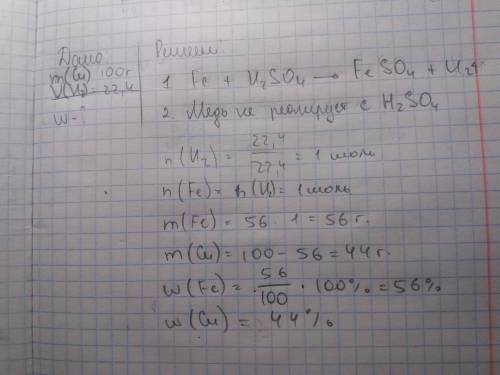 Дано
m(Cu) 100г
V(H₂) = 22,4
w-?
Решение:
1. Fe + H₂SO₄ → FeSO₄ + H₂↑
2. Медь не реагирует с H₂SO₄
n(H₂) = 22,4/22,4 = 1 моль
n(Fe) = n(H₂) = 1 моль
m(Fe) = 56 · 1 = 56 г.
m(Cu) = 100 - 56 = 44 г.
w(Fe) = 56/100 · 100% = 56%
w(Cu) = 44%